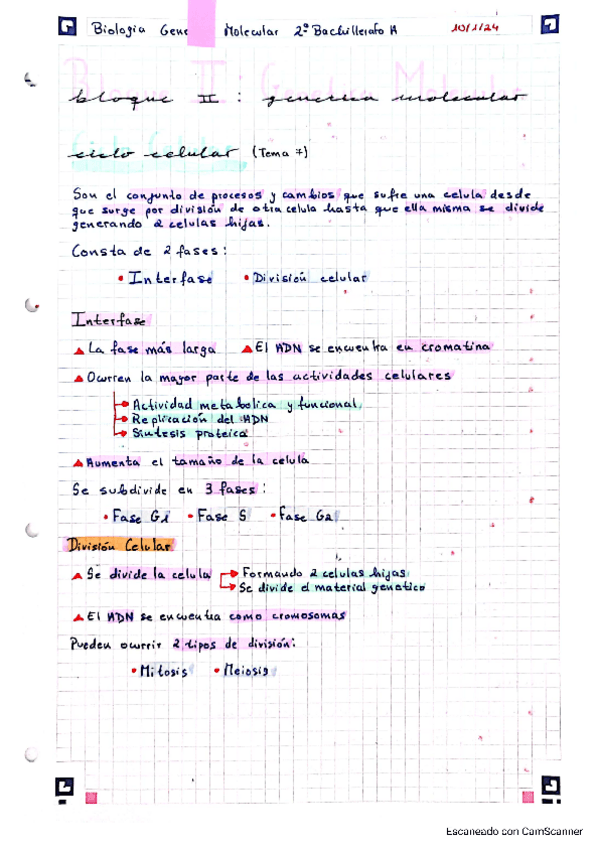 Biologia Gene Molecular 2º Bachillerato A 10/1/24
Bloque II: Genetica Molecular
ciclo celular (Tema 7)
Son el conjunto de procesos y cambios que sufre una celula desde
que surge por división de otra celula hasta que ella misma se divide
generando 2 celulas hijas.
Consta de 2 fases:
• Interfase • División celular
Interfase
▲ La fase más larga ▲ El ADN se encuentra en cromatina
▲ Ocurren la mayor parte de las actividades celulares
Actividad metabolica y funcional
Replicación del ADN
Sintesis proteica
▲ Aumenta el tamaño de la celula
Se subdivide en 3 fases:
• Fase G1 • Fase S • Fase G2
División Celular
▲ Se divide la celula → Formando 2 celulas hijas
→ Se divide el material genetico
▲ El ADN se encuentra como cromosomas
Pueden ocurrir 2 tipos de división:
• Mitosis • Meiosis
Escaneado con CamScanner